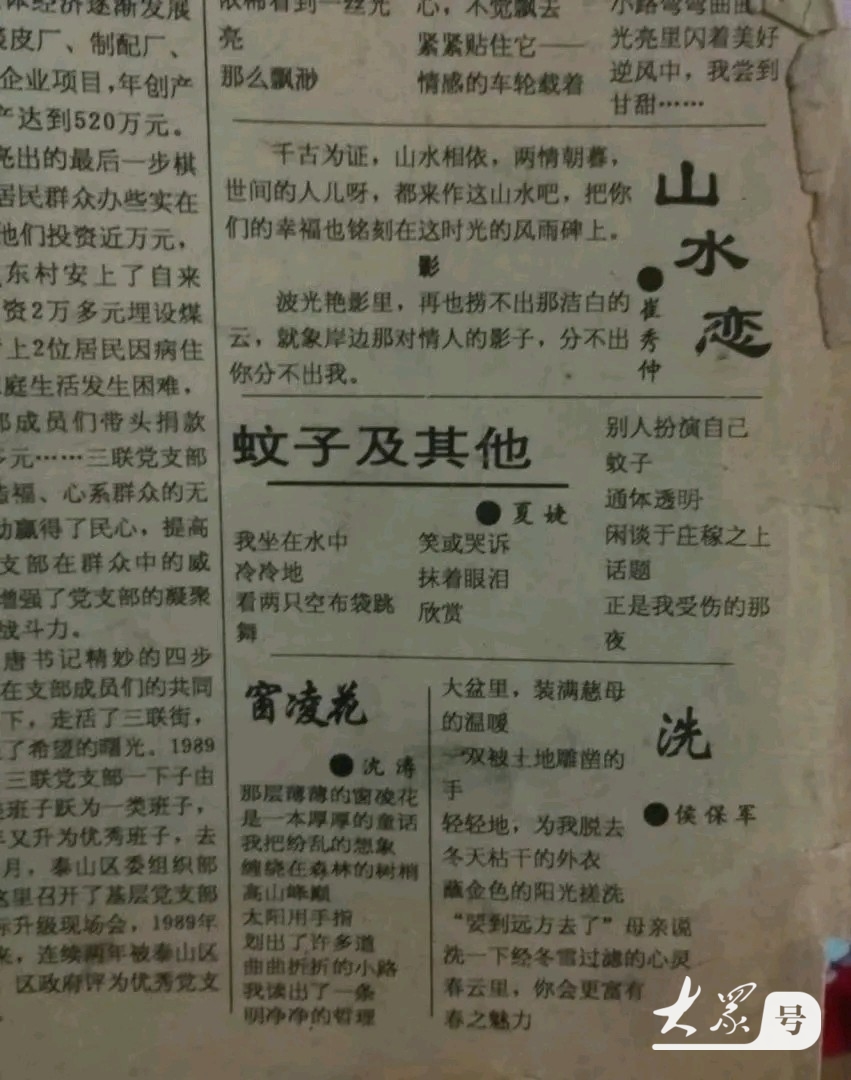 体经济逐渐发展
皮厂、制配厂、
企业项目，年创产
产达到520万元。
亮出的最后一步棋
居民群众办些实在
他们投资近万元，
东村安上了自来
资2万多元埋设煤
上2位居民因病住
家庭生活发生困难，
部成员们带头捐款
多元……三联党支部
造福、心系群众的无
动赢得了民心，提高
支部在群众中的威
增强了党支部的凝聚
战斗力。
唐书记精妙的四步
在支部成员们的共同
下，走活了三联街，
了希望的曙光。1989
三联党支部一下子由
类班子跃为一类班子，
年又升为优秀班子，去
月，泰山区委组织部
这里召开了基层党支部
标升级现场会，1989年
来，连续两年被泰山区
区政府评为优秀党支
依稀看到一丝光
亮
那么飘渺
心，不觉飘去
紧紧贴住它——
情感的车轮载着
小路弯弯曲曲
光亮里闪着美好
逆风中，我尝到
甘甜……
山水恋
●崔秀仲
千古为证，山水相依，两情朝暮，
世间的人儿呀，都来作这山水吧，把你
们的幸福也铭刻在这时光的风雨碑上。
影
波光艳影里，再也捞不出那洁白的
云，就象岸边那对情人的影子，分不出
你分不出我。
蚊子及其他
●夏婕
我坐在水中
冷冷地
看两只空布袋跳
舞
笑或哭诉
抹着眼泪
欣赏
别人扮演自己
蚊子
通体透明
闲谈于庄稼之上
话题
正是我受伤的那
夜
窗凌花
●沈涛
那层薄薄的窗凌花
是一本厚厚的童话
我把纷乱的想象
缠绕在森林的树梢
高山峰巅
太阳用手指
划出了许多道
曲曲折折的小路
我读出了一条
明净净的哲理
洗
●侯保军
大盆里，装满慈母
的温暖
一双被土地雕凿的
手
轻轻地，为我脱去
冬天枯干的外衣
蘸金色的阳光搓洗
“要到远方去了”母亲说
洗一下经冬雪过滤的心灵
春云里，你会更富有
春之魅力
大众号